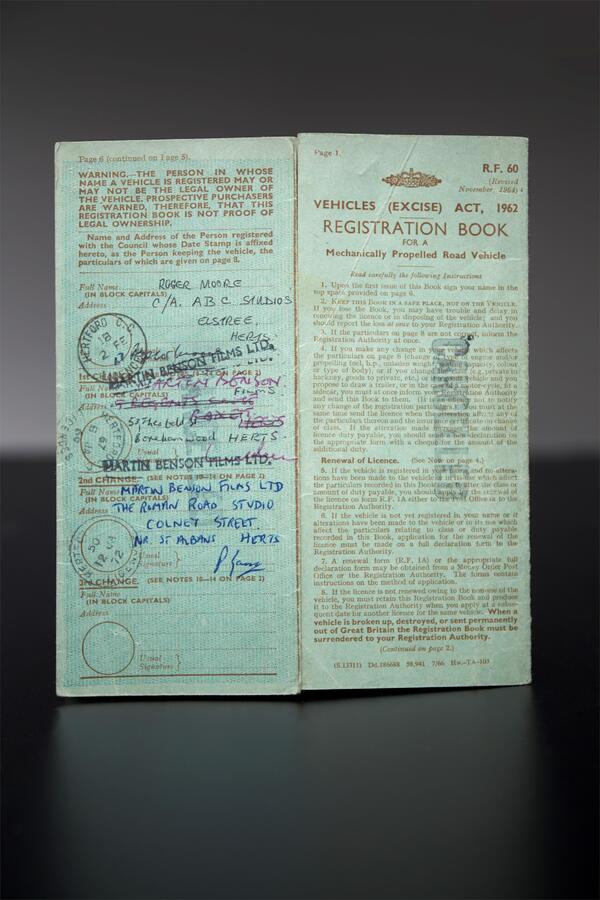 Page 6 (continued on Page 5).
WARNING.—THE PERSON IN WHOSE
NAME A VEHICLE IS REGISTERED MAY OR
MAY NOT BE THE LEGAL OWNER OF
THE VEHICLE. PROSPECTIVE PURCHASERS
ARE WARNED, THEREFORE, THAT THIS
REGISTRATION BOOK IS NOT PROOF OF
LEGAL OWNERSHIP.
Name and Address of the Person registered
with the Council whose Date Stamp is affixed
hereto, as the Person keeping the vehicle, the
particulars of which are given on page 8.
Full Name ROGER MOORE
(IN BLOCK CAPITALS)
Address C/A. ABC STUDIOS
ELSTREE.
HERTS
HERTFORD C.C.
18
2 FE
MARTIN BENSON FILMS LTD.
1st CHANGE. PAGE 2)
Full Name MARTIN BENSON
(IN BLOCK CAPITALS) Films
Address
Borehamwood HERTS
Usual
MARTIN BENSON FILMS LTD.
2nd CHANGE. (SEE NOTES 10—14 ON PAGE 2)
Full Name MARTIN BENSON FILMS LTD
(IN BLOCK CAPITALS)
Address THE ROMAN ROAD STUDIO
COLNEY STREET.
NR. ST ALBANS HERTS
72
Usual
Signature
3rd CHANGE. (SEE NOTES 10—14 ON PAGE 2)
Full Name
(IN BLOCK CAPITALS)
Address
Usual
Signature
Page 1.
R.F. 60
(Revised
November, 1964)
VEHICLES (EXCISE) ACT, 1962
REGISTRATION BOOK
FOR A
Mechanically Propelled Road Vehicle
Read carefully the following Instructions
1. Upon the first issue of this Book sign your name in the
top space provided on page 6.
2. KEEP THIS BOOK IN A SAFE PLACE, NOT ON THE VEHICLE.
If you lose the Book, you may have trouble and delay in
renewing the licence or in disposing of the vehicle; and you
should report the loss at once to your Registration Authority.
3. If the particulars on page 8 are incorrect, inform the
Registration Authority at once.
4. If you make any change in your which affects
the particulars on page 8 (change of engine and/or
propelling fuel, h.p., colour
or type of body), or if you private to
hackney, goods to private, etc.) or vehicle and you
propose to draw a trailer, or in a motor-cycle, a
sidecar, you must at once inform your Authority
and send this Book to them. to notify
any change of the registration You must at the
same time send the licence when the affects any of
the particulars thereon and the
ance. If the alteration affects the amount of
licence duty payable, you should declaration on
the appropriate form with a cheque for the amount of the
additional duty.
Renewal of Licence. (See Note on page 4.)
5. If the vehicle is registered in and no altera-
tions have been made to the vehicle or its use which affect
the particulars recorded in this Book or the class or
amount of duty payable, you should the renewal of
the licence on form R.F. 1A either to the Post Office or to the
Registration Authority.
6. If the vehicle is not yet registered in your name or if
alterations have been made to the vehicle or its use which
affect the particulars relating to class or duty payable
recorded in this Book, application for the renewal of the
licence must be made on a full declaration form to the
Registration Authority.
7. A renewal form (R.F. 1A) or the appropriate full
declaration form may be obtained from a Money Order Post
Office or the Registration Authority. The forms contain
instructions on the method of application.
8. If the licence is not renewed owing to the non-use of the
vehicle, you must retain this Registration Book and produce
it to the Registration Authority when you apply at a subse-
quent date for another licence for the same vehicle. When a
vehicle is broken up, destroyed, or sent permanently
out of Great Britain the Registration Book must be
surrendered to your Registration Authority.
(Continued on page 2.)
(S.13311) Dd.186688 58,941 7/66 Hw.—TA-103